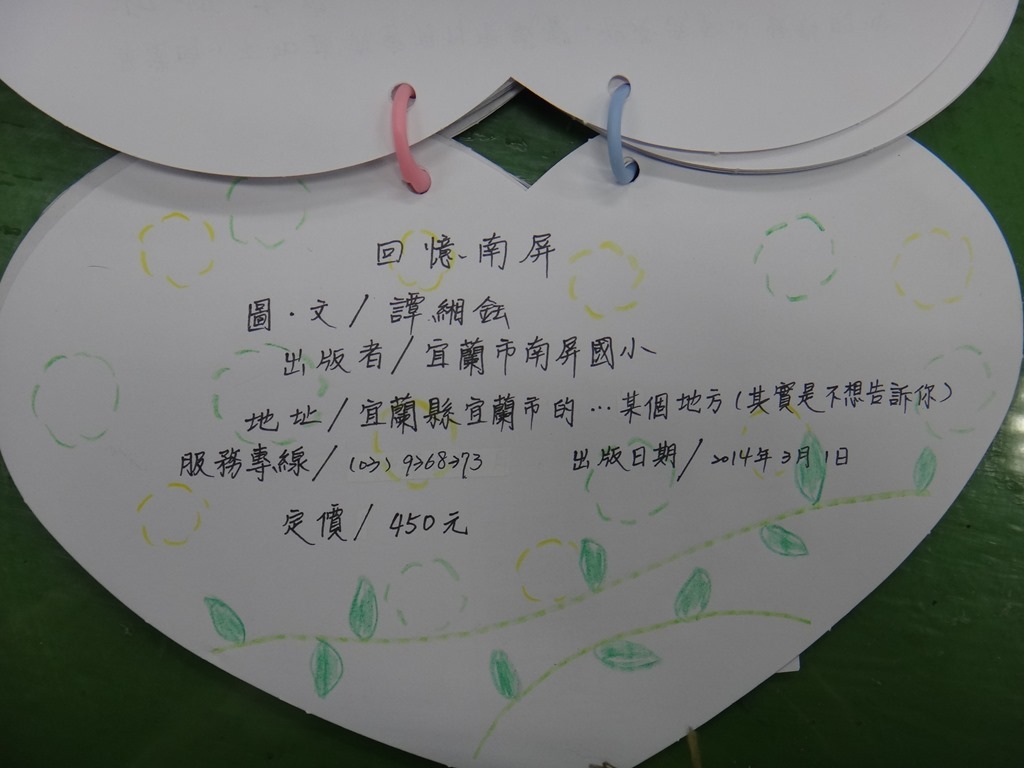 回憶南屏
圖．文／譚緗鈺
出版者／宜蘭市南屏國小
地址／宜蘭縣宜蘭市的…某個地方(其實是不想告訴你)
服務專線／(03) 9368373 出版日期／2014年3月1日
定價／450元